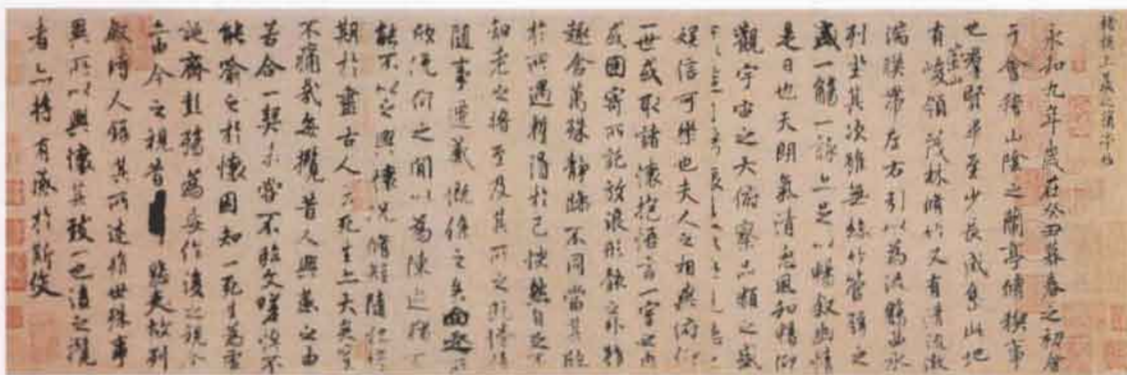 褚模王羲之蘭亭帖
永和九年歲在癸丑暮春之初會
于會稽山陰之蘭亭脩禊事
也羣賢畢至少長咸集此地
有崇山峻領茂林脩竹又有清流激
湍暎帶左右引以為流觴曲水
列坐其次雖無絲竹管弦之
盛一觴一詠亦足以暢敘幽情
是日也天朗氣清惠風和暢仰
觀宇宙之大俯察品類之盛
娛信可樂也夫人之相與俯仰
一世或取諸懷抱悟言一室之內
或因寄所託放浪形骸之外雖
趣舍萬殊靜躁不同當其欣
於所遇暫得於己怏然自足不
知老之將至及其所之既惓情
隨事遷感慨係之矣向之所
欣俛仰之間以為陳迹猶不
能不以之興懷況脩短隨化終
期於盡古人云死生亦大矣豈
不痛哉每攬昔人興感之由
若合一契未嘗不臨文嗟悼不
能喻之於懷固知一死生為虛
誕齊彭殤為妄作後之視今
亦由今之視昔悲夫故列
敘時人錄其所述雖世殊事
異所以興懷其致一也後之攬
者亦將有感於斯文